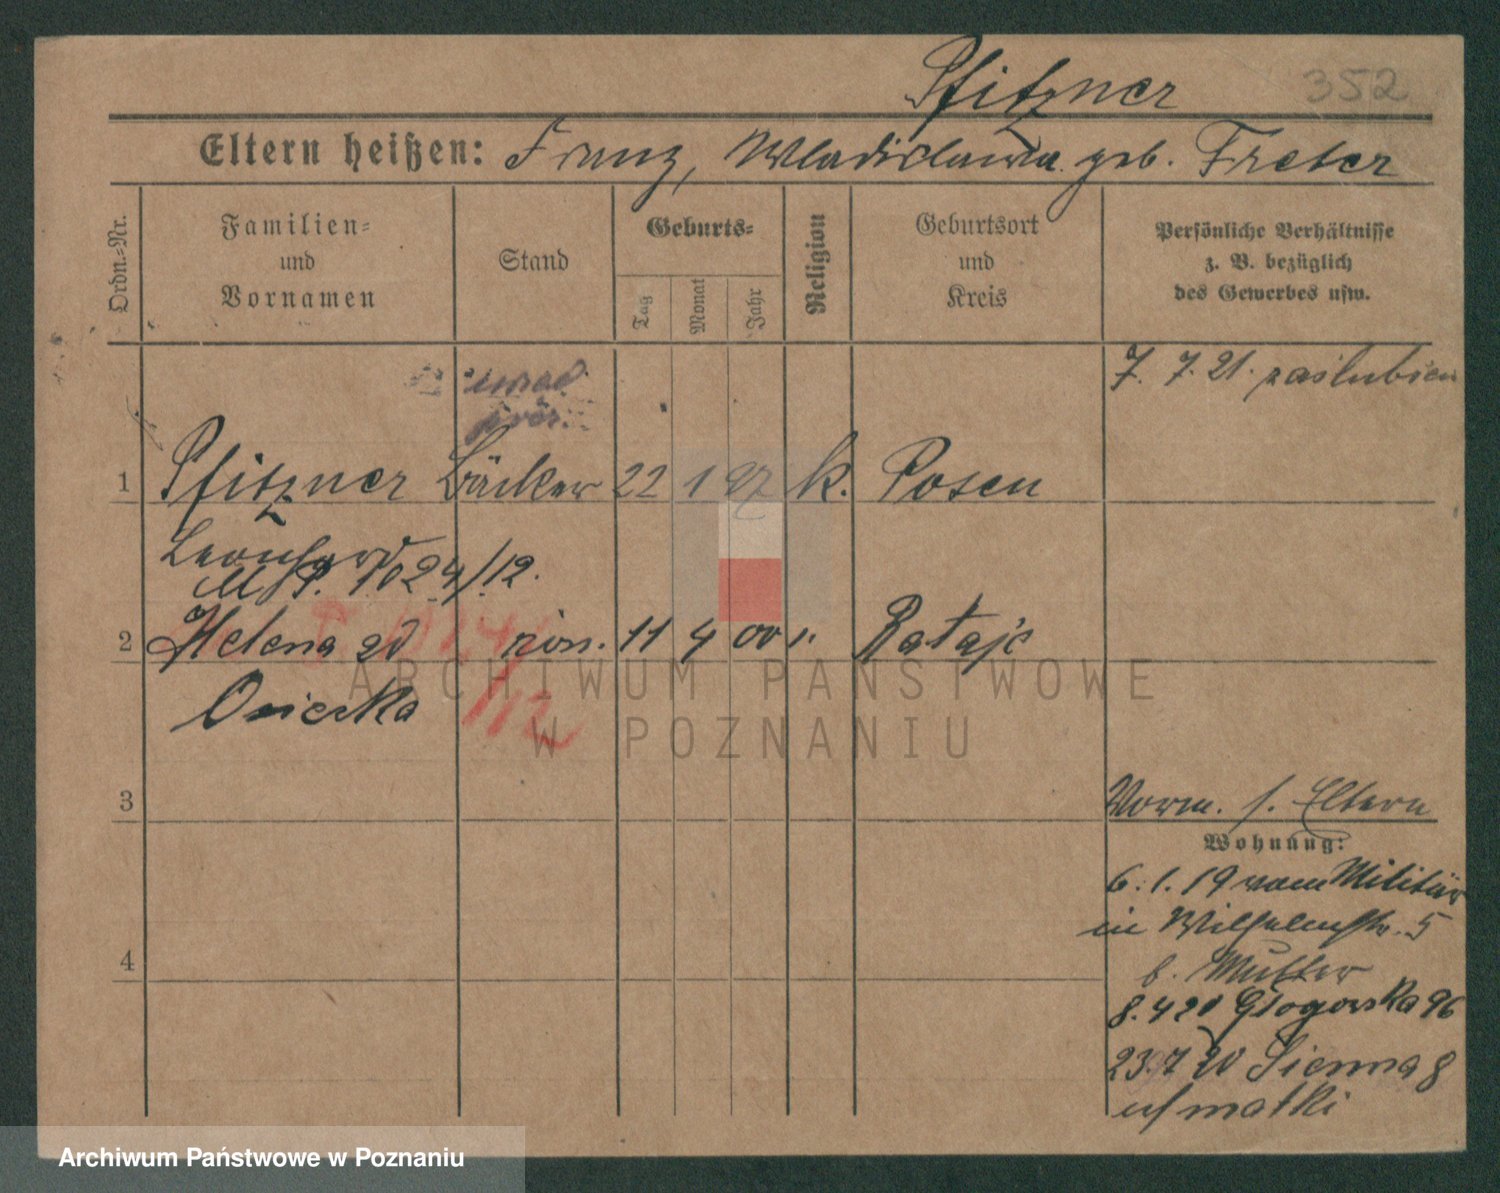 Pfitzner 352
Eltern heißen: Franz, Wladislawa geb. Freter
Ordn.-Nr.
Familien-
und
Vornamen
Stand
Geburts-
Tag
Monat
Jahr
Religion
Geburtsort
und
Kreis
Persönliche Verhältnisse
z. B. bezüglich
des Gewerbes usw.
7. 7. 21. zaślubien
1 Pfitzner Bäcker 22 1 97 k. Posen
Leonhard
M. P. 1024/12.
2 Helena zd 11 4 00 r. Rataje
Osiecka
ARCHIWUM PAŃSTWOWE
W POZNANIU
3
Vorm. s. Eltern
Wohnung:
6. 1. 19 vom Militär
in Wilhelmstr. 5
b. Mutter
4
8. 4 20 Głogowska 96
23. 7 20 Sienna 8
u/ matki
Archiwum Państwowe w Poznaniu